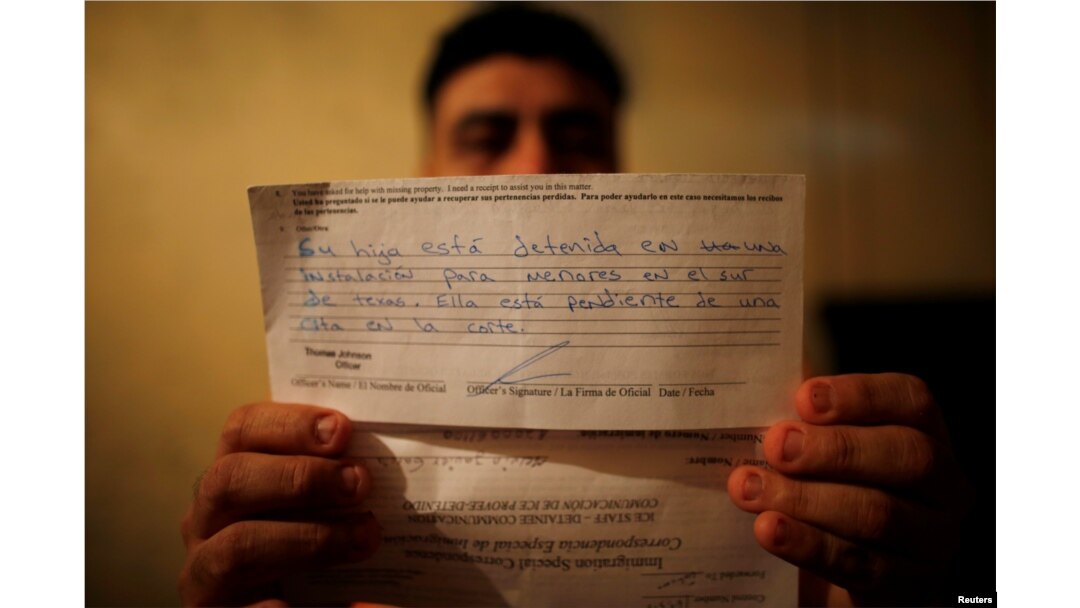 8. You have asked for help with missing property. I need a receipt to assist you in this matter.
Usted ha preguntado si se le puede ayudar a recuperar sus pertenencias perdidas. Para poder ayudarlo en este caso necesitamos los recibos
de las pertenencias.
9. Other/Otra:
Su hija está detenida en una
instalación para menores en el sur
de texas. Ella está pendiente de una
cita en la corte.
Thomas Johnson
Officer
Officer's Name / El Nombre de Oficial Officer's Signature / La Firma de Oficial Date / Fecha
Number / Numero de inmigración:
Name / Nombre: Javier
COMUNICACIÓN DE ICE PROVEE-DETENIDO
ICE STAFF – DETAINEE COMMUNICATION
Correspondencia Especial de Inmigración
Immigration Special Correspondence
Forwarded To
Control Number
Reuters